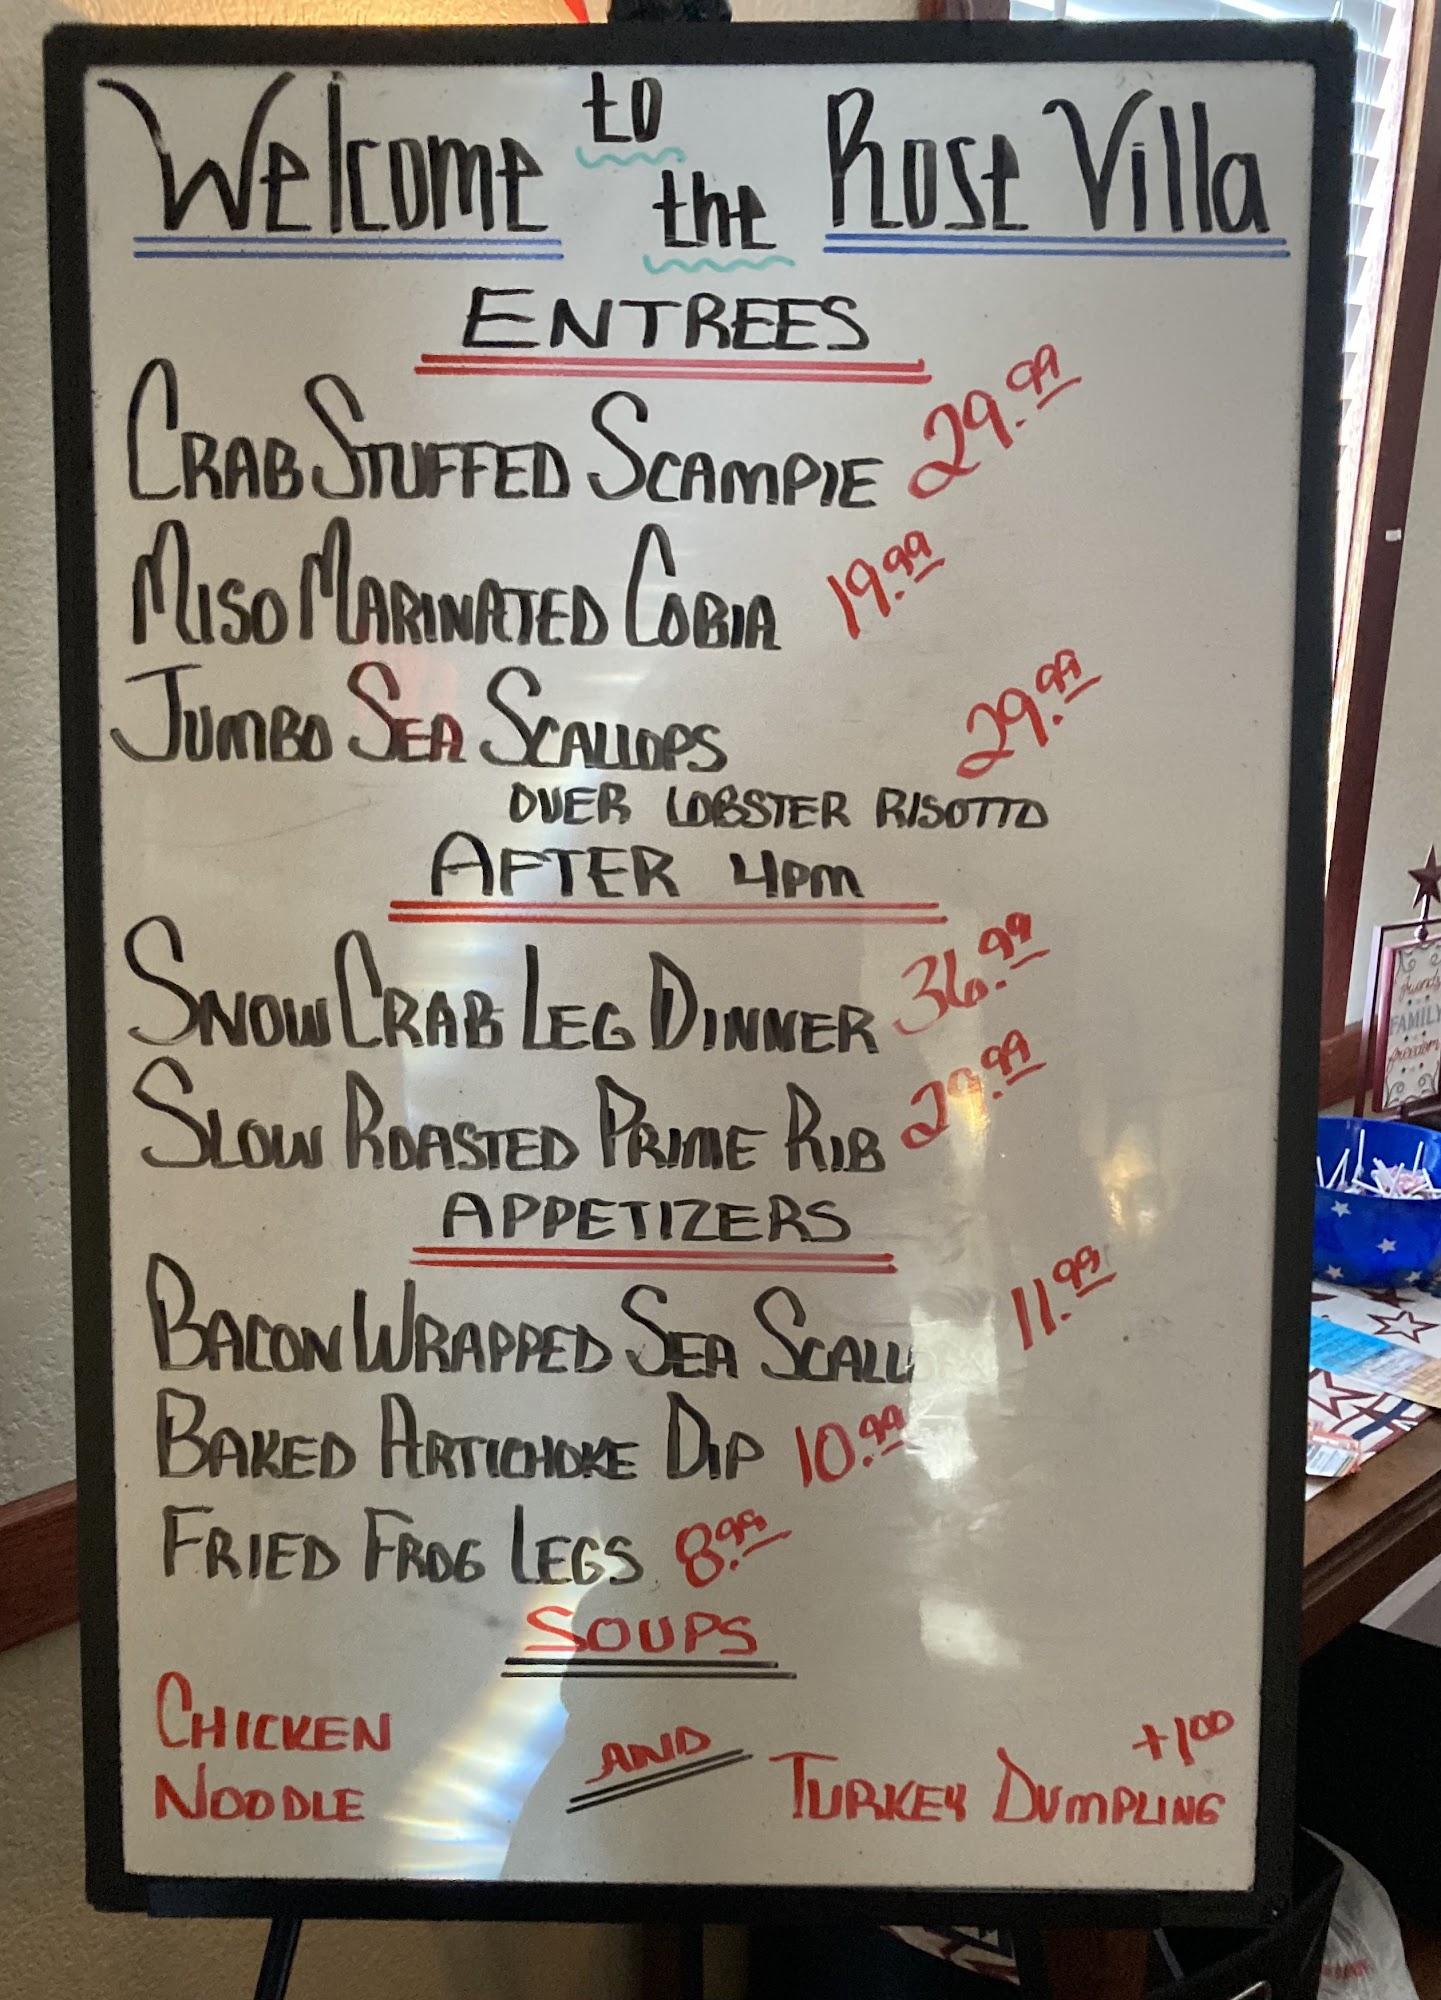 Welcome to the Rose Villa
ENTREES
CRAB STUFFED SCAMPIE 29.99
MISO MARINATED COBIA 19.99
JUMBO SEA SCALLOPS 29.99
OVER LOBSTER RISOTTO
AFTER 4pm
SNOW CRAB LEG DINNER 36.99
SLOW ROASTED PRIME RIB 29.99
APPETIZERS
BACON WRAPPED SEA 11.99
BAKED ARTICHOKE DIP 10.99
FRIED FROG LEGS 8.99
SOUPS
CHICKEN NOODLE AND TURKEY DUMPLING +1.00
FAMILY
freedom